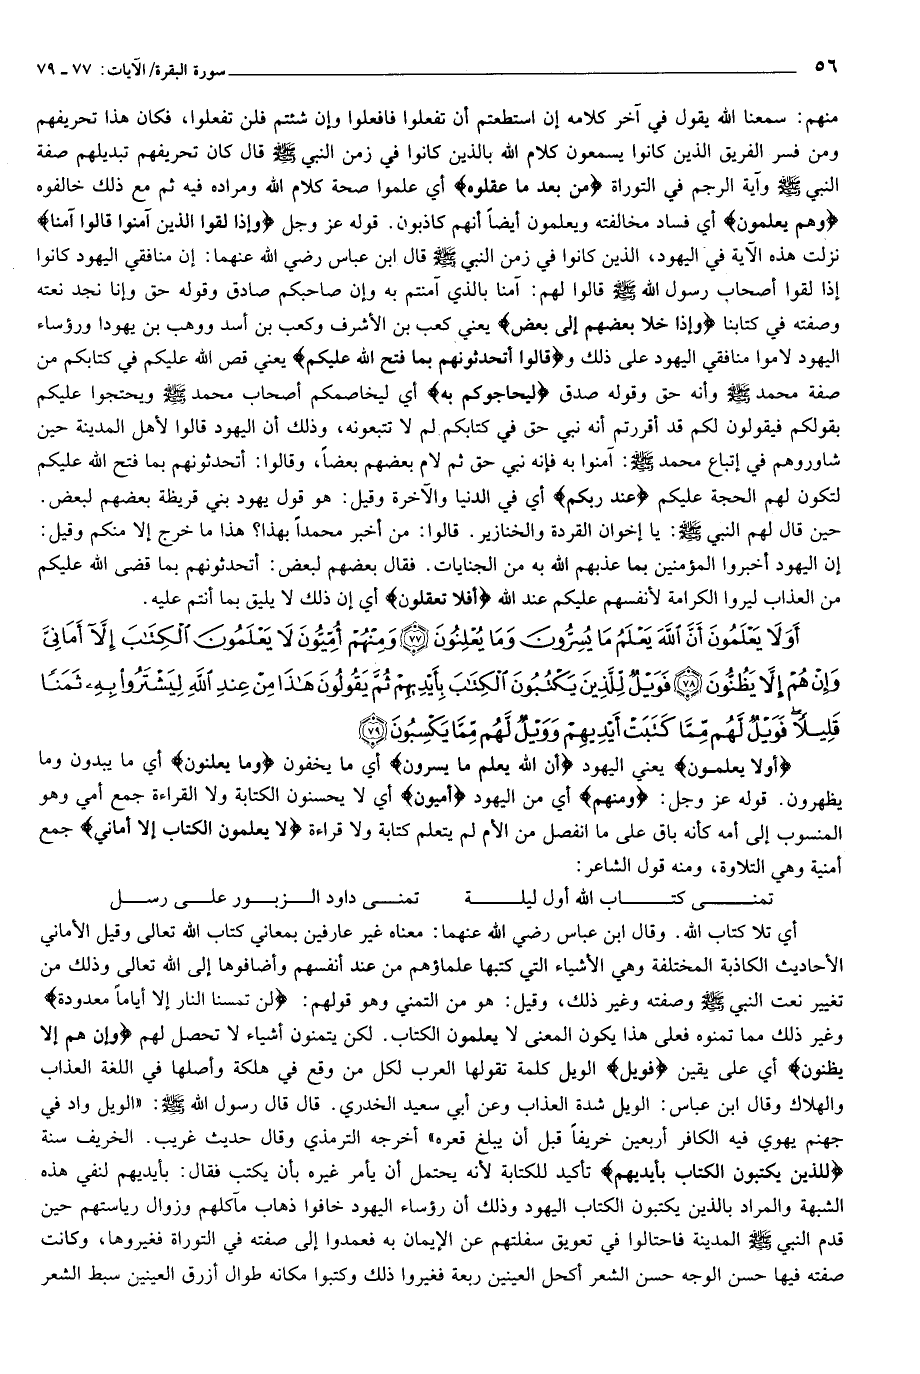 ٥٦ سورة البقرة/ الآيات: ٧٧ ـ ٧٩
منهم: سمعنا الله يقول في آخر كلامه إن استطعتم أن تفعلوا فافعلوا وإن شئتم فلن تفعلوا، فكان هذا تحريفهم
ومن فسر الفريق الذين كانوا يسمعون كلام الله بالذين كانوا في زمن النبي ﷺ قال كان تحريفهم تبديلهم صفة
النبي ﷺ وآية الرجم في التوراة ﴿من بعد ما عقلوه﴾ أي علموا صحة كلام الله ومراده فيه ثم مع ذلك خالفوه
﴿وهم يعلمون﴾ أي فساد مخالفته ويعلمون أيضاً أنهم كاذبون. قوله عز وجل ﴿وإذا لقوا الذين آمنوا قالوا آمنا﴾
نزلت هذه الآية في اليهود، الذين كانوا في زمن النبي ﷺ قال ابن عباس رضي الله عنهما: إن منافقي اليهود كانوا
إذا لقوا أصحاب رسول الله ﷺ قالوا لهم: آمنا بالذي آمنتم به وإن صاحبكم صادق وقوله حق وإنا نجد نعته
وصفته في كتابنا ﴿وإذا خلا بعضهم إلى بعض﴾ يعني كعب بن الأشرف وكعب بن أسد ووهب بن يهودا ورؤساء
اليهود لاموا منافقي اليهود على ذلك و﴿قالوا أتحدثونهم بما فتح الله عليكم﴾ يعني قص الله عليكم في كتابكم من
صفة محمد ﷺ وأنه حق وقوله صدق ﴿ليحاجوكم به﴾ أي ليخاصمكم أصحاب محمد ﷺ ويحتجوا عليكم
بقولكم فيقولون لكم قد أقررتم أنه نبي حق في كتابكم لم لا تتبعونه، وذلك أن اليهود قالوا لأهل المدينة حين
شاوروهم في إتباع محمد ﷺ: آمنوا به فإنه نبي حق ثم لام بعضهم بعضاً، وقالوا: أتحدثونهم بما فتح الله عليكم
لتكون لهم الحجة عليكم ﴿عند ربكم﴾ أي في الدنيا والآخرة وقيل: هو قول يهود بني قريظة بعضهم لبعض.
حين قال لهم النبي ﷺ: يا إخوان القردة والخنازير. قالوا: من أخبر محمداً بهذا؟ هذا ما خرج إلا منكم وقيل:
إن اليهود أخبروا المؤمنين بما عذبهم الله به من الجنايات. فقال بعضهم لبعض: أتحدثونهم بما قضى الله عليكم
من العذاب ليروا الكرامة لأنفسهم عليكم عند الله ﴿أفلا تعقلون﴾ أي إن ذلك لا يليق بما أنتم عليه.
أَوَلَا يَعْلَمُونَ أَنَّ ٱللَّهَ يَعْلَمُ مَا يُسِرُّونَ وَمَا يُعْلِنُونَ ﴿٧٧﴾ وَمِنْهُمْ أُمِّيُّونَ لَا يَعْلَمُونَ ٱلْكِتَٰبَ إِلَّآ أَمَانِىَّ
وَإِنْ هُمْ إِلَّا يَظُنُّونَ ﴿٧٨﴾ فَوَيْلٌ لِّلَّذِينَ يَكْتُبُونَ ٱلْكِتَٰبَ بِأَيْدِيهِمْ ثُمَّ يَقُولُونَ هَٰذَا مِنْ عِندِ ٱللَّهِ لِيَشْتَرُوا۟ بِهِۦ ثَمَنًا
قَلِيلًا ۖ فَوَيْلٌ لَّهُم مِّمَّا كَتَبَتْ أَيْدِيهِمْ وَوَيْلٌ لَّهُم مِّمَّا يَكْسِبُونَ ﴿٧٩﴾
﴿أولا يعلمون﴾ يعني اليهود ﴿أن الله يعلم ما يسرون﴾ أي ما يخفون ﴿وما يعلنون﴾ أي ما يبدون وما
يظهرون. قوله عز وجل: ﴿ومنهم﴾ أي من اليهود ﴿أميون﴾ أي لا يحسنون الكتابة ولا القراءة جمع أمي وهو
المنسوب إلى أمه كأنه باق على ما انفصل من الأم لم يتعلم كتابة ولا قراءة ﴿لا يعلمون الكتاب إلا أماني﴾ جمع
أمنية وهي التلاوة، ومنه قول الشاعر:
تمنـى كتـاب الله أول ليلـة تمنـى داود الـزبـور علـى رسـل
أي تلا كتاب الله. وقال ابن عباس رضي الله عنهما: معناه غير عارفين بمعاني كتاب الله تعالى وقيل الأماني
الأحاديث الكاذبة المختلفة وهي الأشياء التي كتبها علماؤهم من عند أنفسهم وأضافوها إلى الله تعالى وذلك من
تغيير نعت النبي ﷺ وصفته وغير ذلك، وقيل: هو من التمني وهو قولهم: ﴿لن تمسنا النار إلا أياماً معدودة﴾
وغير ذلك مما تمنوه فعلى هذا يكون المعنى لا يعلمون الكتاب. لكن يتمنون أشياء لا تحصل لهم ﴿وإن هم إلا
يظنون﴾ أي على يقين ﴿فويل﴾ الويل كلمة تقولها العرب لكل من وقع في هلكة وأصلها في اللغة العذاب
والهلاك وقال ابن عباس: الويل شدة العذاب وعن أبي سعيد الخدري. قال قال رسول الله ﷺ: «الويل واد في
جهنم يهوي فيه الكافر أربعين خريفاً قبل أن يبلغ قعره» أخرجه الترمذي وقال حديث غريب. الخريف سنة
﴿للذين يكتبون الكتاب بأيديهم﴾ تأكيد للكتابة لأنه يحتمل أن يأمر غيره بأن يكتب فقال: بأيديهم لنفي هذه
الشبهة والمراد بالذين يكتبون الكتاب اليهود وذلك أن رؤساء اليهود خافوا ذهاب مآكلهم وزوال رياستهم حين
قدم النبي ﷺ المدينة فاحتالوا في تعويق سفلتهم عن الإيمان به فعمدوا إلى صفته في التوراة فغيروها، وكانت
صفته فيها حسن الوجه حسن الشعر أكحل العينين ربعة فغيروا ذلك وكتبوا مكانه طوال أزرق العينين سبط الشعر